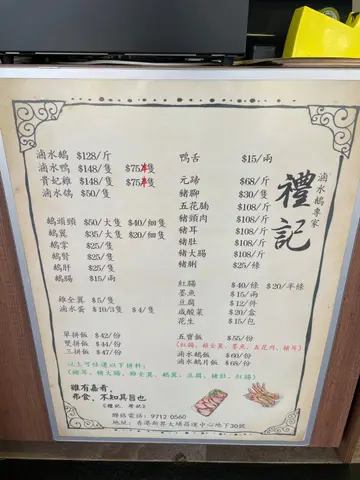 滷水鵝專家
禮記
滷水鵝 $128/斤
滷水鴨 $148/隻 $75/半隻
貴妃雞 $148/隻 $75/半隻
滷水鴿 $50/隻
鵝頭頸 $50/大隻 $40/細隻
鵝翼 $35/大隻 $20/細隻
鵝掌 $25/隻
鵝腎 $25/隻
鵝肝 $25/隻
鵝腸 $15/両
雞全翼 $5/隻
滷水蛋 $10/3隻 $4/隻
單拼飯 $42/份
雙拼飯 $44/份
三拼飯 $47/份
以上可任選以下拼料:
(豬耳、豬大腸、雞全翼、鵝翼、豆腐、豬肚、紅腸)
雖有嘉肴,
弗食,不知其旨也
《禮記.學記》
鴨舌 $15/両
元蹄 $68/斤
豬腳 $30/隻
五花腩 $108/斤
豬頭肉 $108/斤
豬耳 $108/斤
豬肚 $108/斤
豬大腸 $108/斤
豬脷 $25/條
紅腸 $40/條 $20/半條
墨魚 $15/両
豆腐 $12/件
咸酸菜 $20/盒
花生 $15/包
五寶飯 $55/份
(紅腸、雞全翼、墨魚、五花肉、豬耳)
滷水鵝飯 $60/份
滷水鵝片飯 $68/份
聯絡電話: 9712 0560
地址: 香港新界大埔昌運中心地下30號